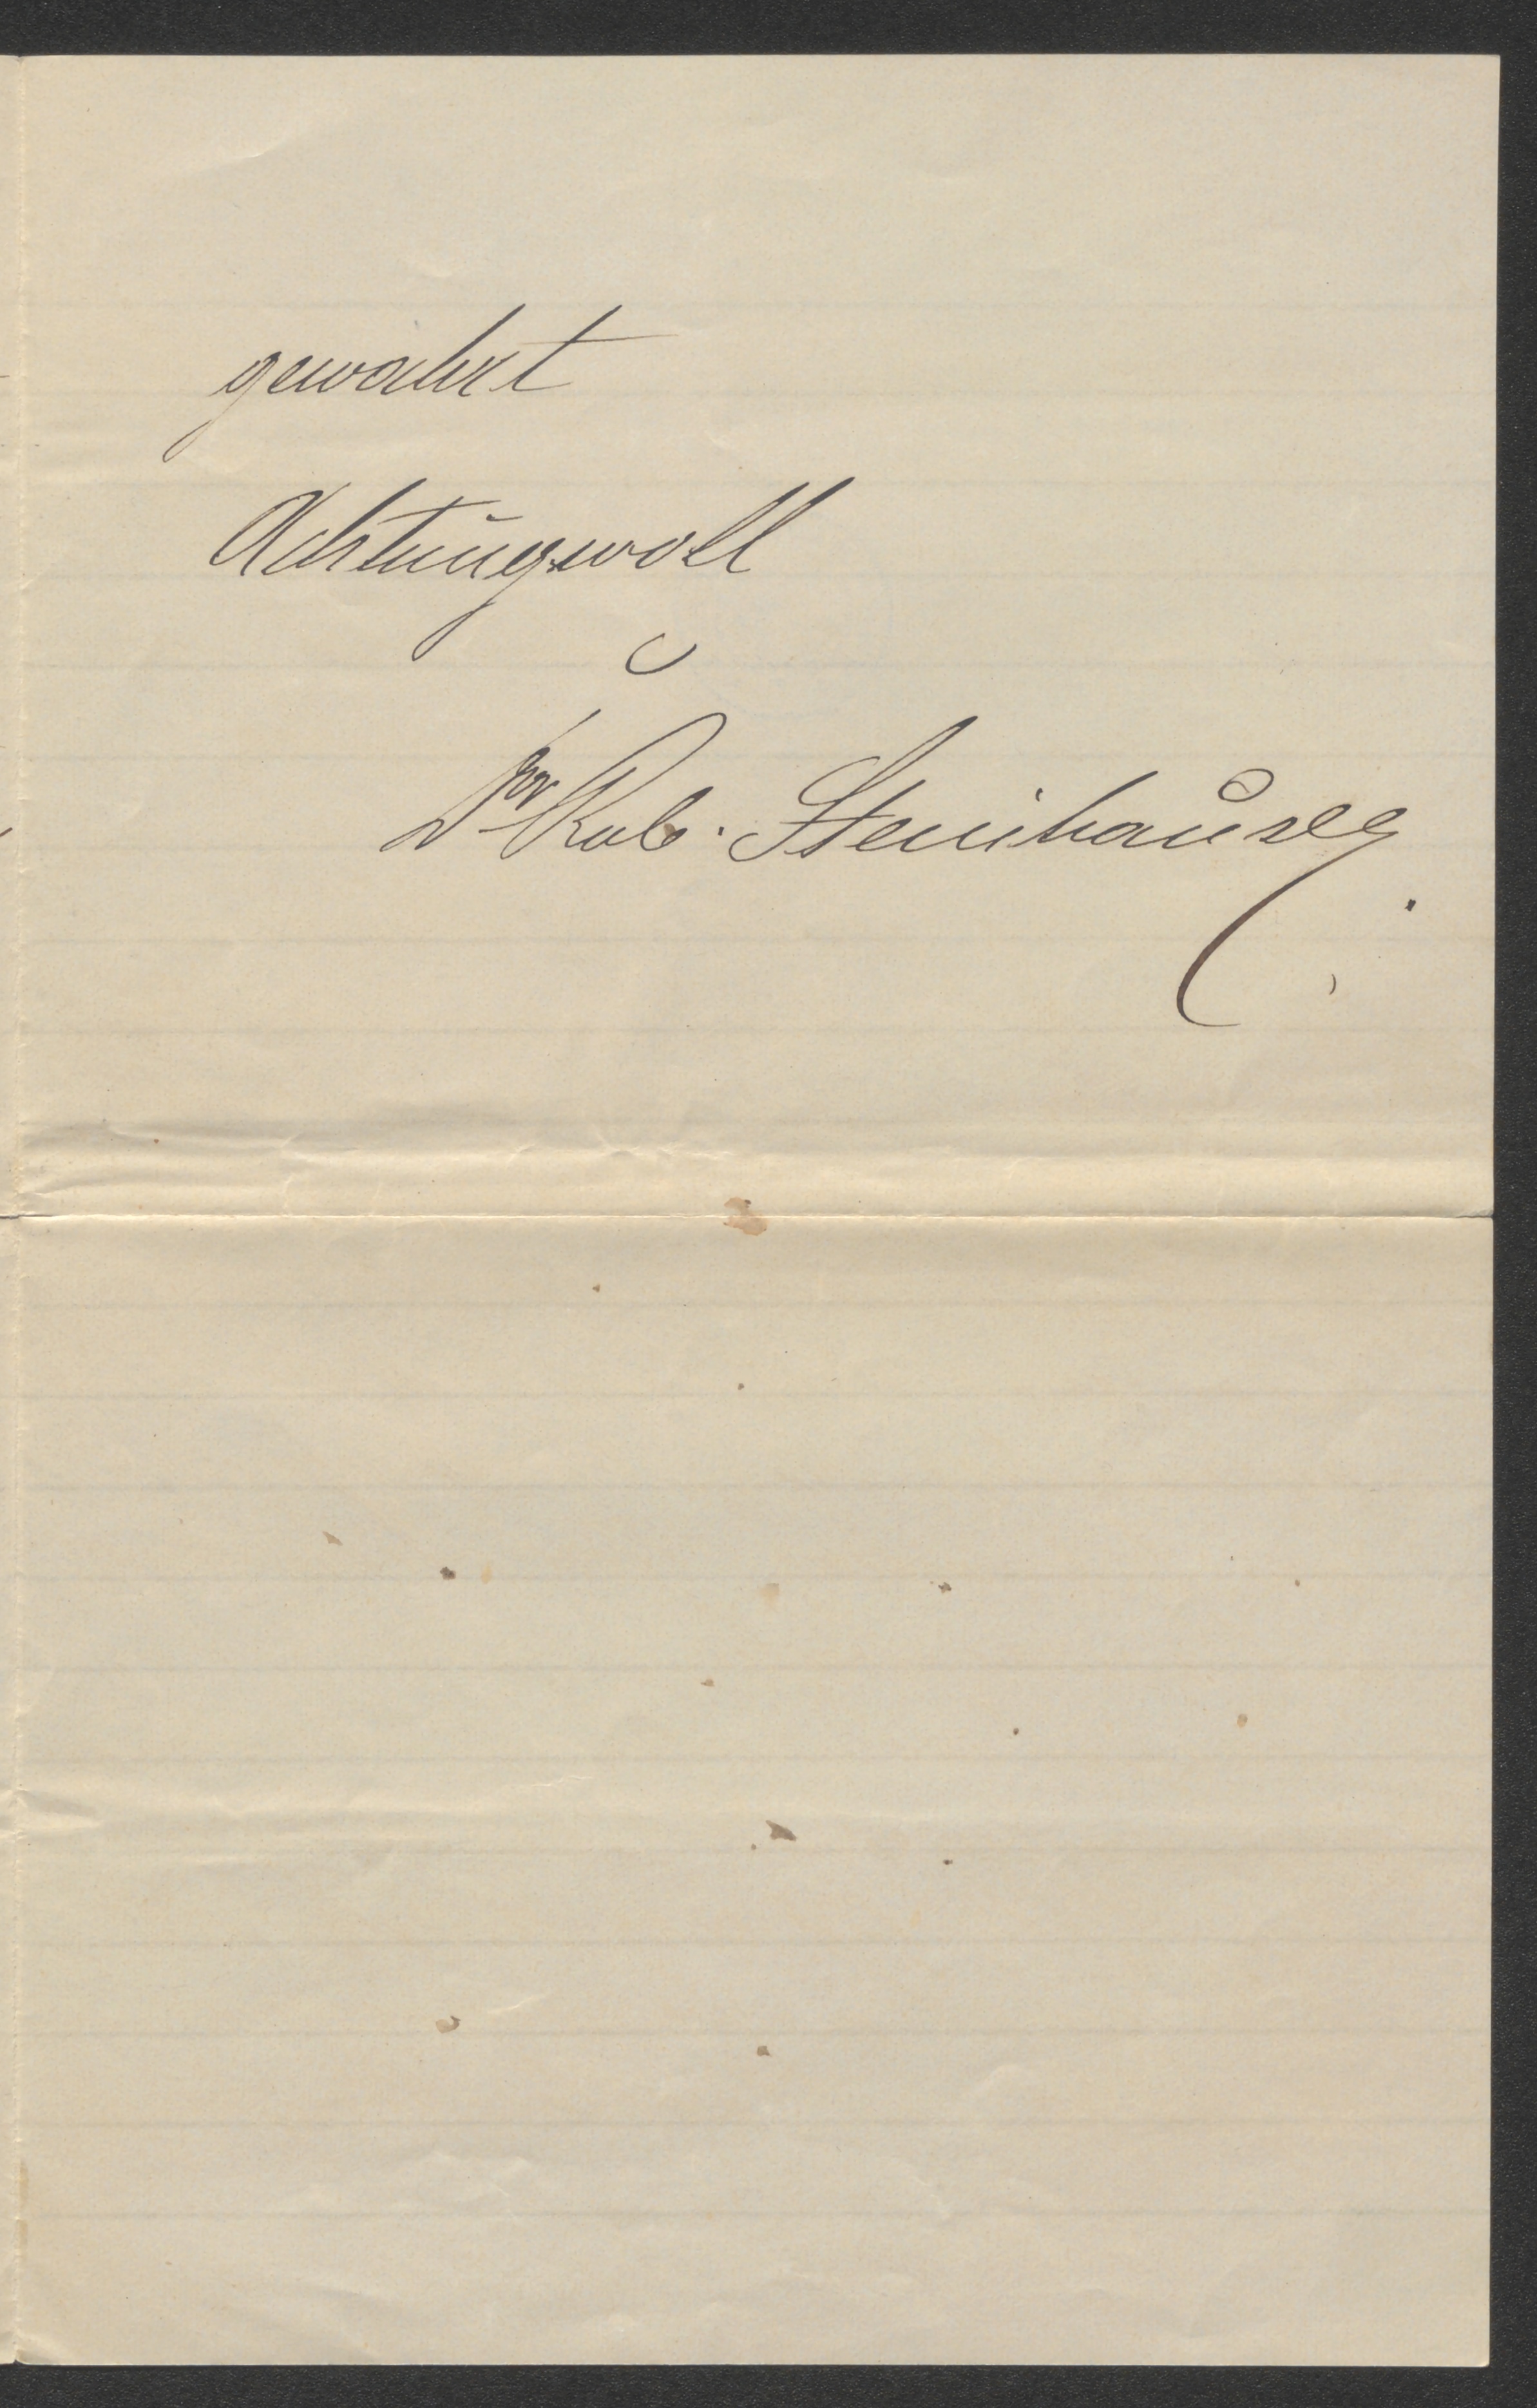 gewahrt
Achtungsvoll
Dr Rob. Steinhauser